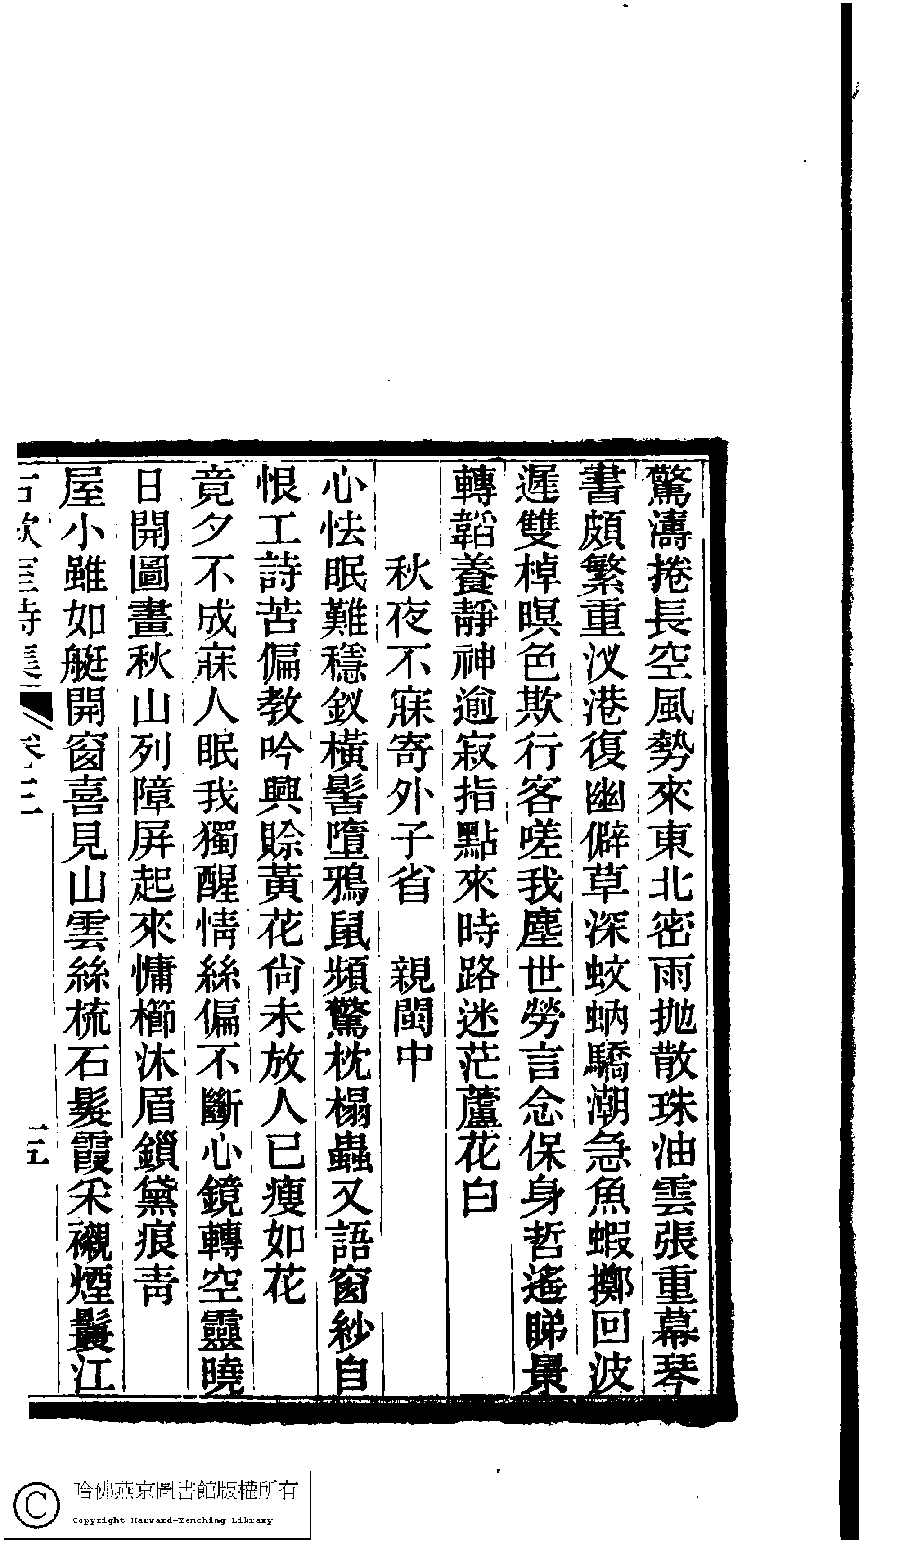 驚濤捲長空風勢來東北密雨抛散珠油雲張重幕琴
書頗繁重汊港復幽僻草深蚊蚋驕潮急魚蝦擲回波
遲雙棹暝色欺行客嗟我塵世勞言念保身哲遙睇景
轉韜養靜神逾寂指點來時路迷茫蘆花白
秋夜不寐寄外子省 親閩中
心怯眠難穩釵橫髻墮鴉鼠頻驚枕榻蟲又語窗紗自
恨工詩苦偏教吟興賒黃花尙未放人已瘦如花
竟夕不成寐人眠我獨醒情絲偏不斷心鏡轉空靈曉
日開圖畫秋山列障屏起來慵櫛沐眉鎖黛痕靑
屋小雖如艇開窗喜見山雲絲梳石髮霞采襯煙鬟江
卷三
五
哈佛燕京圖書館版權所有
Copyright Harvard-Yenching Library